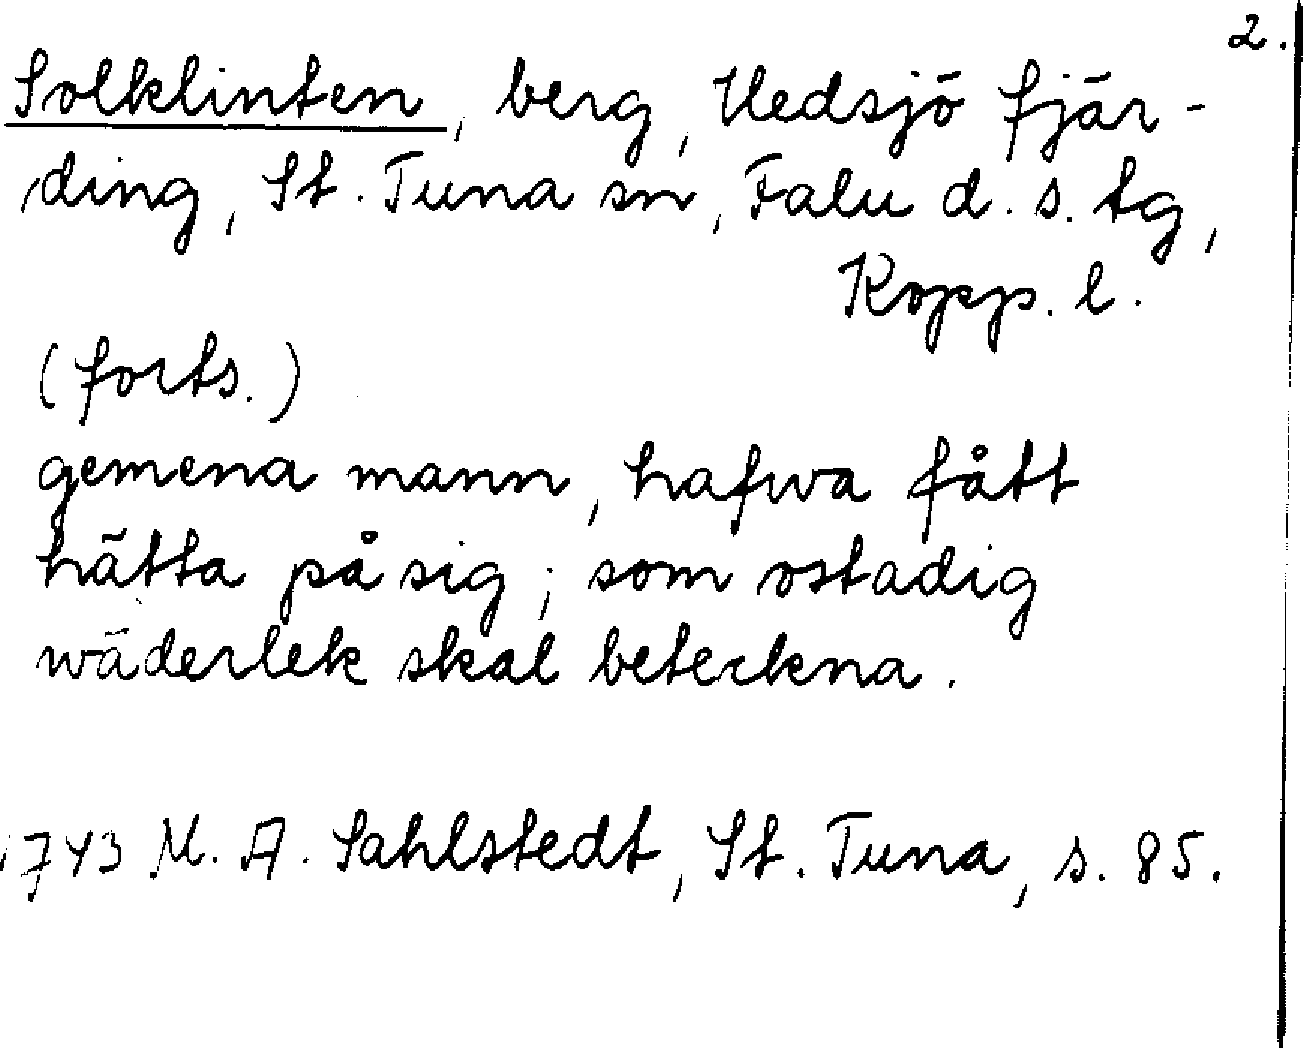 2.
Solklinten, berg, Uedsjö fjär-
ding, St. Tuna sn, Falu d. s. tg,
Kopp. l.
(forts.)
gemena mann, hafwa fått
hätta på sig; som ostadig
wäderlek skal beteckna.
1743 M. A. Sahlstedt, St. Tuna, s. 85.